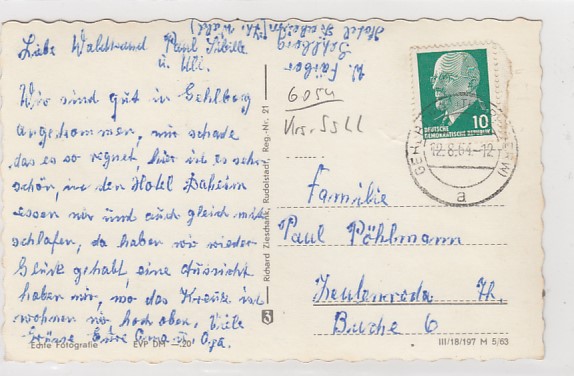 Liebe Waltraud Paul Sibille
u. Ulli.
Wir sind gut in Gehlberg
angekommen, nur schade
das es so regnet, hier ist es sehr
schön, in den Hotel Daheim
essen wir und auch gleich mit
schlafen, da haben wir wieder
Glück gehabt, eine Aussicht
haben wir, wo das Kreutz ist
wohnen wir hoch oben. Viele
Grüsse Eure Oma u. Opa.
Echte Fotografie EVP DM —.20
Gehlberg
Hotel Daheim (Th. Wald)
6054
Krs. Suhl
Richard Zieschank, Rudolstadt, Reg.-Nr. 21
3
10
DEUTSCHE
DEMOKRATISCHE REPUBLIK
12.8.64.-12
a
Familie
Paul Pöhlmann
Zeulenroda Th.
Buche 6
III/18/197 M 5/63